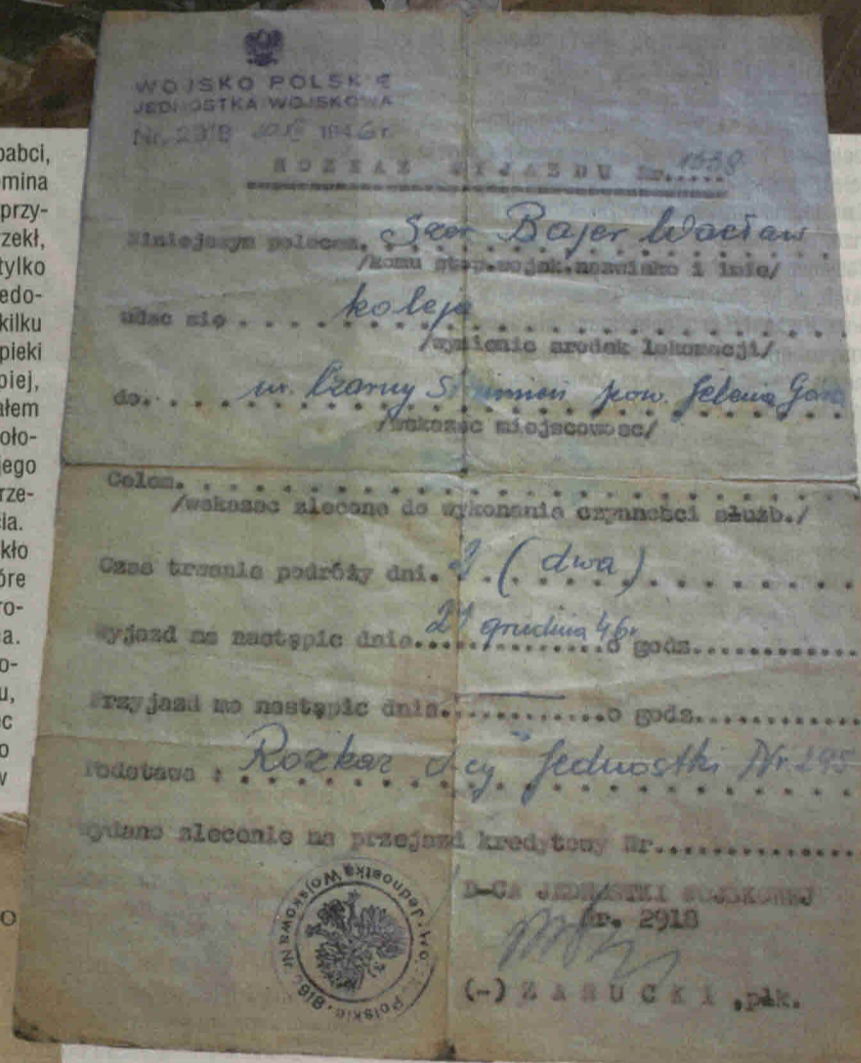 babci,
omina
przy-
rzekł,
tylko
edo-
kilku
pieki
piej,
ałem
oło-
jego
rze-
cia.
kło
óre
ro-
a.
o-
u,
ec
o
w
WOJSKO POLSKIE
JEDNOSTKA WOJSKOWA
Nr. 2918 1946 r.
ROZKAZ WYJAZDU Nr..... 1338
Niniejszym polecam. Szer Bajer Wacław
/komu stop.wojsk.nazwisko i imie/
udac się koleją
/wymienic srodek lokomocji/
do. m. Czarny Strumień pow. Jelenia Góra
/wskazac miejscowosc/
Celem.
/wskazac zlecone do wykonania czynności służb./
Czas trwania podróży dni. 2 (dwa)
Wyjazd ma nastąpic dnia. 21 grudnia 46r o godz.
Przyjazd ma nastąpic dnia. o godz.
Podstawa : Rozkaz d-cy Jednostki Nr. 295
Wydano zlecenie na przejazd kredytowy Nr.
D-CA JEDNOSTKI WOJSKOWEJ
Nr. 2918
(-) ZARUCKI, płk.
Wojsko Polskie • Jednostka Wojskowa Nr. 2918
O